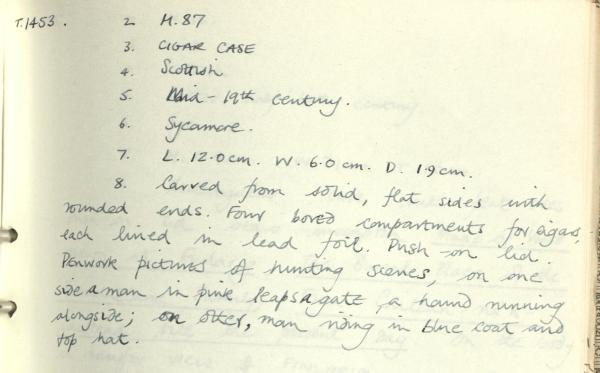 T.1453. 2. H.87
3. CIGAR CASE
4. Scottish
5. Mid-19th century.
6. Sycamore.
7. L. 12.0cm. W. 6.0cm. D. 1.9cm.
8. Carved from solid, flat sides with
rounded ends. Four bored compartments for cigars,
each lined in lead foil. Push-on lid.
Penwork pictures of hunting scenes, on one
side a man in pink leaps a gate, a hound running
alongside; on other, man riding in blue coat and
top hat.